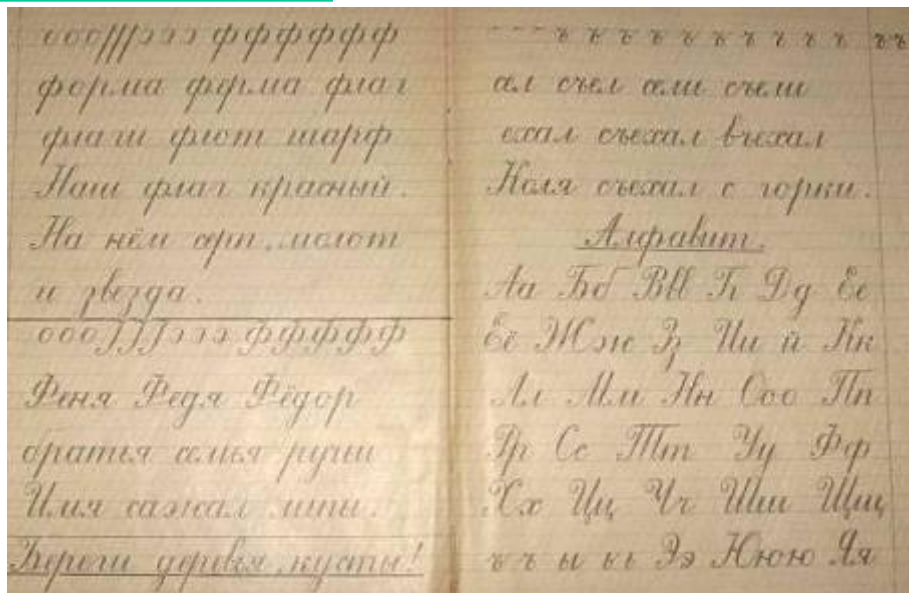 ооо///эээ ф ф ф ф ф ф
форма ферма флаг
флаги флот шарф
Наш флаг красный.
На нём серп, молот
и звезда.
ооо///эээ ф ф ф ф ф
Феня Федя Фёдор
братья семья ручьи
Илья сажал липы.
Береги деревья, кусты!
ъ ъ ъ ъ ъ ъ ъ ъ ъ ъ ъ ъ
сел съел сели съели
ехал съехал въехал
Коля съехал с горки.
Алфавит.
Аа Бб Ввв Гг Дд Ее
Ёё Жж Зз Ии й Кк
Лл Мм Нн Ооо Пп
Рр Сс Тт Уу Фф
Хх Цц Чч Шш Щщ
ъ ъ ы ь Ээ Ююю Яя